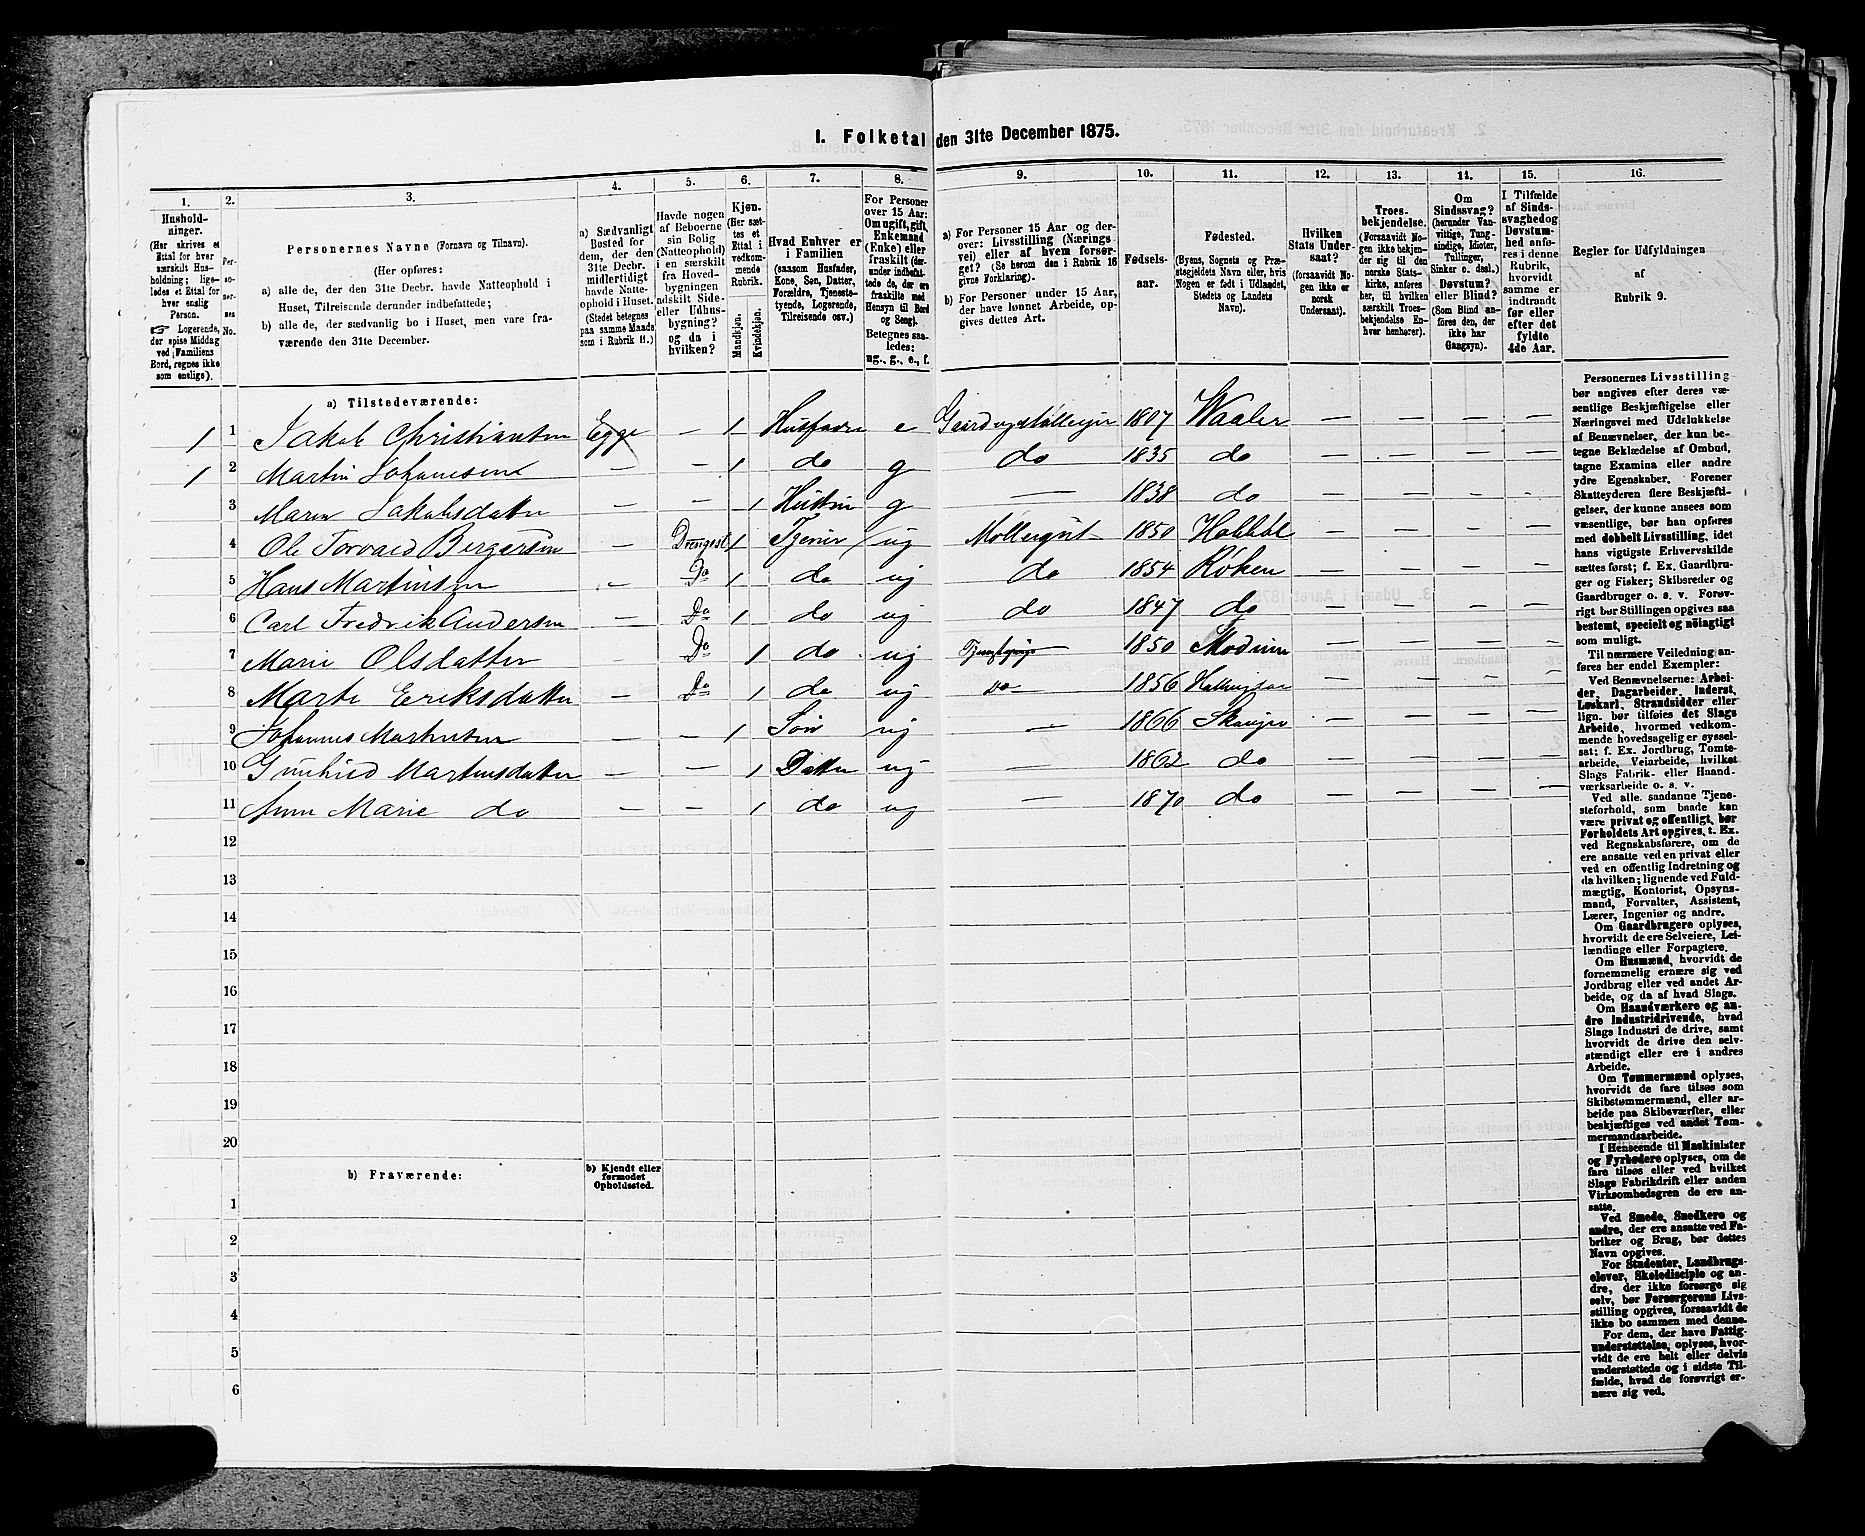 I. Folketal den 31te December 1875.
1. 2. 3. 4. 5. 6. 7. 8. 9. 10. 11. 12. 13. 14. 15. 16.
Hushold-
ninger.
(Her skrives et
Ettal for hver
særskilt Hus-
holdning; lige-
ledes et Ettal for
hver enslig
Person.
☞ Logerende,
der spise Middag
ved Familiens
Bord, regnes ikke
som enslige).
Per-
so-
ner-
nes
No.
Personernes Navne (Fornavn og Tilnavn).
(Her opføres:
a) alle de, der den 31te Decbr. havde Natteophold i
Huset, Tilreisende derunder indbefattede;
b) alle de, der sædvanlig bo i Huset, men vare fra-
værende den 31te December.
a) Sædvanligt
Bosted for
dem, der den
31te Decbr.
midlertidigt
havde Natte-
ophold i Huset.
(Stedet betegnes
paa samme Maade
som i Rubrik 11.)
Havde nogen
af Beboerne
sin Bolig
(Natteophold)
i en særskilt
fra Hoved-
bygningen
adskilt Side-
eller Udhus-
bygning?
og da i
hvilken?
Kjøn.
(Her sæt-
tes et
Ettal i
vedkom-
mende
Rubrik.
Mandkjøn.
Kvindekjøn.
Hvad Enhver er
i Familien
(saasom Husfader,
Kone, Søn, Datter,
Forældre, Tjeneste-
tyende, Logerende,
Tilreisende osv.)
For Personer
over 15 Aar:
Om ugift, gift,
Enkemand
(Enke) eller
fraskilt (der-
under indbefat-
tede de, der ere
fraskilte med
Hensyn til Bord
og Seng).
Betegnes saa-
ledes:
ug., g., e., f.
a) For Personer 15 Aar og der-
over: Livsstilling (Nærings-
vei) eller af hvem forsør-
get? (Se herom den i Rubrik 16
givne Forklaring).
b) For Personer under 15 Aar,
der have lønnet Arbeide, op-
gives dettes Art.
Fødsels-
aar.
Fødested.
(Byens, Sognets og Præ-
stegjeldets Navn eller, hvis
Nogen er født i Udlandet,
Stedets og Landets
Navn).
Hvilken
Stats Under-
saat?
(forsaavidt No-
gen ikke er
norsk
Undersaat).
Troes-
bekjendelse.
(Forsaavidt No-
gen ikke bekjen-
der sig til den
norske Stats-
kirke, anføres
her, til hvilken
særskilt Troes-
bekjendelse En-
hver henhører).
Om
Sindssvag?
(herunder Van-
vittige, Tung-
sindige, Idioter,
Tullinger,
Sinker o. desl.)
Døvstum?
eller Blind?
(Som Blind an-
føres den, der
ikke har
Gangsyn).
I Tilfælde
af Sinds-
svaghed og
Døvstum-
hed anfø-
res i denne
Rubrik,
hvorvidt
samme er
indtraadt
før eller
efter det
fyldte
4de Aar.
Regler for Udfyldningen
af
Rubrik 9.
a) Tilstedeværende:
1 1 Jakob Christiansen Egge — 1 Husfader e 1807 Waaler — — — —
1 2 Martin Johansen — — 1 do g do 1835 do — — — —
3 Maren Jakobsdatter — — 1 Hustru g — 1838 do — — — —
4 Ole Torvald Bergersen — Drengest 1 Tjener ug 1850 Hobbøl — — — —
5 Hans Martinsen — Do 1 do ug do 1854 Røken — — — —
6 Carl Fredrik Andersen — Do 1 do ug do 1847 do — — — —
7 Marie Olsdatter — Do 1 do ug 1850 Modum — — — —
8 Marte Eriksdatter — Do 1 do ug do 1856 — — — —
9 Johannes Martinsen — — 1 Søn ug — 1866 — — — —
10 Gunhild Martinsdatter — — 1 Datter ug — 1862 do — — — —
11 Anne Marie do — — 1 do ug — 1870 do — — — —
12
13
14
15
16
17
18
19
20
b) Fraværende:
b) Kjendt eller
formodet
Opholdssted.
1
2
3
4
5
6
Personernes Livsstilling
bør angives efter deres væ-
sentlige Beskjæftigelse eller
Næringsvei med Udelukkelse
af Benævnelser, der kun be-
tegne Beklædelse af Ombud,
tagne Examina eller andre
ydre Egenskaber. Forener
Skatteyderen flere Beskjæfti-
gelser, der kunne ansees som
væsentlige, bør han opføres
med dobbelt Livsstilling, idet
hans vigtigste Erhvervskilde
sættes først; f. Ex. Gaardbru-
ger og Fisker; Skibsreder og
Gaardbruger o. s. v. Forøv-
rigt bør Stillingen opgives saa
bestemt, specielt og nöiagtigt
som muligt.
Til nærmere Veiledning an-
føres her endel Exempler:
Ved Benævnelserne: Arbei-
der, Dagarbeider, Inderst,
Løskarl, Strandsidder eller
lign. bør tilføies det Slags
Arbeide, hvormed vedkom-
mende hovedsagelig er syssel-
sat; f. Ex. Jordbrug, Tomte-
arbeide, Veiarbeide, hvilket
Slags Fabrik- eller Haand-
værksarbeide o. s. v.
Ved alle saadanne Tjene-
steforhold, som baade kan
være privat og offentligt, bør
Forholdets Art opgives, t. Ex.
ved Regnskabsførere, om de
ere ansatte ved en privat eller
ved en offentlig Indretning og
da hvilken; lignende ved Fuld-
mægtig, Kontorist, Opsyns-
mand, Forvalter, Assistent,
Lærer, Ingeniør og andre.
Om Gaardbrugere oplyses,
hvorvidt de ere Selveiere, Lei-
lændinge eller Forpagtere.
Om Husmænd, hvorvidt de
fornemmelig ernære sig ved
Jordbrug eller ved andet Ar-
beide, og da af hvad Slags.
Om Haandværkere og an-
dre Industridrivende, hvad
Slags Industri de drive, samt
hvorvidt de drive den selv-
stændigt eller ere i andres
Arbeide.
Om Tømmermænd oplyses,
hvorvidt de fare tilsøs som
Skibstømmermænd, eller ar-
beide paa Skibsværfter, eller
beskjæftiges ved andet Tøm-
mermandsarbeide.
I Henseende til Maskinister
og Fyrbødere oplyses, om de
fare tilsøs eller ved hvilket
Slags Fabrikdrift eller anden
Virksomhedsgren de ere an-
satte.
Ved Smede, Snedkere og
andre, der ere ansatte ved Fa-
briker og Brug, bør dettes
Navn opgives.
For Studenter, Landbrugs-
elever, Skoledisciple og an-
dre, der ikke forsørge sig
selv, bør Forsørgerens Livs-
stilling opgives, forsaavidt de
ikke bo sammen med denne.
For dem, der have Fattig-
understøttelse, oplyses, hvor-
vidt de ere helt eller delvis
understøttede og i sidste Til-
fælde, hvad de forøvrigt er-
nære sig ved.